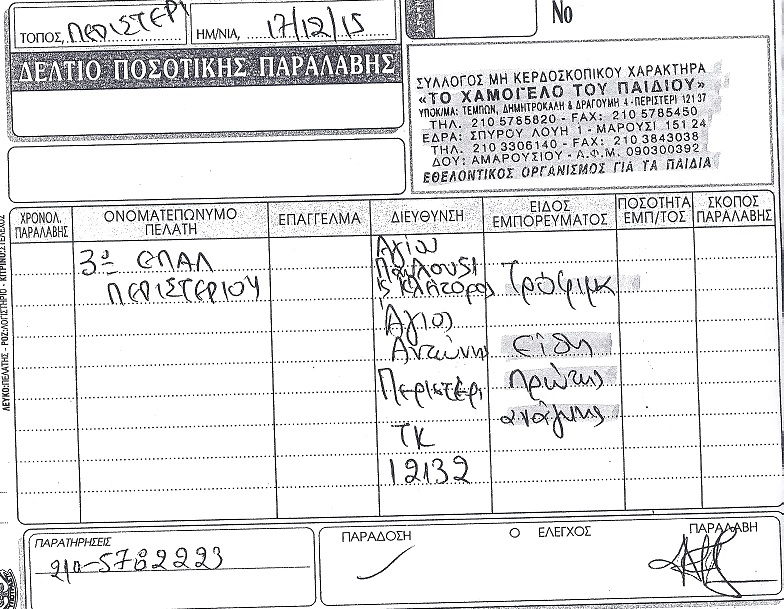 ΤΟΠΟΣ, ΠΕΡΙΣΤΕΡΙ ΗΜ/ΝΙΑ, 17/12/15
Νο
ΔΕΛΤΙΟ ΠΟΣΟΤΙΚΗΣ ΠΑΡΑΛΑΒΗΣ
ΣΥΛΛΟΓΟΣ ΜΗ ΚΕΡΔΟΣΚΟΠΙΚΟΥ ΧΑΡΑΚΤΗΡΑ
«ΤΟ ΧΑΜΟΓΕΛΟ ΤΟΥ ΠΑΙΔΙΟΥ»
ΥΠΟΚ/ΜΑ: ΤΕΜΠΩΝ, ΔΗΜΗΤΡΟΚΑΛΗ & ΔΡΑΓΟΥΜΗ 4 - ΠΕΡΙΣΤΕΡΙ 121 37
ΤΗΛ. 210 5785820 - FAX: 210 5785450
ΕΔΡΑ: ΣΠΥΡΟΥ ΛΟΥΗ 1 - ΜΑΡΟΥΣΙ 151 24
ΤΗΛ. 210 3306140 - FAX: 210 3843038
ΔΟΥ: ΑΜΑΡΟΥΣΙΟΥ - Α.Φ.Μ. 090300392
ΕΘΕΛΟΝΤΙΚΟΣ ΟΡΓΑΝΙΣΜΟΣ ΓΙΑ ΤΑ ΠΑΙΔΙΑ
ΧΡΟΝΟΛ. ΠΑΡΑΛΑΒΗΣ
ΟΝΟΜΑΤΕΠΩΝΥΜΟ ΠΕΛΑΤΗ
ΕΠΑΓΓΕΛΜΑ
ΔΙΕΥΘΥΝΣΗ
ΕΙΔΟΣ ΕΜΠΟΡΕΥΜΑΤΟΣ
ΠΟΣΟΤΗΤΑ ΕΜΠ/ΤΟΣ
ΣΚΟΠΟΣ ΠΑΡΑΛΑΒΗΣ
3ο ΕΠΑΛ
ΠΕΡΙΣΤΕΡΙΟΥ
Αγίου
Παύλου 51
Άγιος
Αντώνης
Περιστέρι
ΤΚ
12132
Τρόφιμα
Είδη
πρώτης
ανάγκης
ΛΕΥΚΟ:ΠΕΛΑΤΗΣ - ΡΟΖ:ΛΟΓΙΣΤΗΡΙΟ - ΚΙΤΡΙΝΟ:ΣΤΕΛΕΧΟΣ
ΠΑΡΑΤΗΡΗΣΕΙΣ
210-5782223
ΠΑΡΑΔΟΣΗ
Ο ΕΛΕΓΧΟΣ
ΠΑΡΑΛΑΒΗ